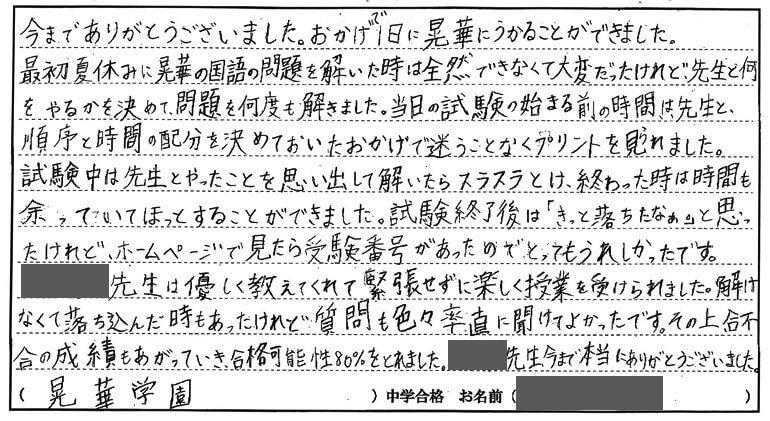 今までありがとうございました。おかげで1日に晃華にうかることができました。
最初夏休みに晃華の国語の問題を解いた時は全然できなくて大変だったけれど、先生と何
をやるかを決めて、問題を何度も解きました。当日の試験の始まる前の時間は先生と、
順序と時間の配分を決めておいたおかげで迷うことなくプリントを見れました。
試験中は先生とやったことを思い出して解いたらスラスラとけ、終わった時は時間も
余っていてほっとすることができました。試験終了後は「きっと落ちたなぁ。」と思っ
たけれど、ホームページで見たら受験番号があったのでとってもうれしかったです。
先生は優しく教えてくれて緊張せずに楽しく授業を受けられました。解け
なくて落ち込んだ時もあったけれど質問も色々率直に聞けてよかったです。その上合不
合の成績もあがっていき、合格可能性80%をとれました。先生今まで本当にありがとうございました。
(晃華学園)中学合格 お名前()